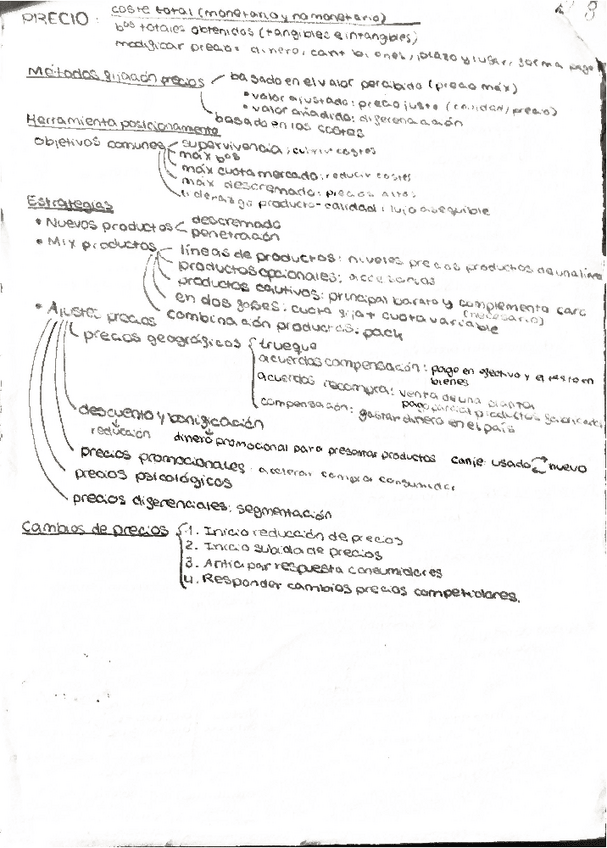 8
PRECIO: coste total (monetario y no monetario)
bºs totales obtenidos (tangibles e intangibles)
modificar precio: dinero, cant bienes, plazo y lugar, forma pago
Métodos fijación precios basado en el valor percibido (precio máx)
• valor ajustado: precio justo (calidad/precio)
• valor añadido: diferenciación
basado en los costes
Herramienta posicionamiento
objetivos comunes supervivencia: cubrir costes
máx bºs
máx cuota mercado: reducir costes
máx descremado: precios altos
liderazgo producto-calidad: lujo asequible
Estrategias
• Nuevos productos descremado
penetración
• Mix productos líneas de productos: niveles precios productos de una línea
productos opcionales: accesorios
productos cautivos: principal barato y complemento caro
(necesario)
en dos fases: cuota fija + cuota variable
combinación productos: pack
• Ajustar precios
precios geográficos trueque
acuerdos compensación: pago en efectivo y el resto en
bienes
acuerdos recompra: venta de una planta
pago parcial productos fabricados
compensación: gastar dinero en el país
descuento y bonificación
reducción dinero promocional para presentar productos canje: usado nuevo
precios promocionales: acelerar compras consumidor
precios psicológicos
precios diferenciales: segmentación
Cambios de precios 1. Inicio reducción de precios
2. Inicio subida de precios
3. Anticipar respuesta consumidores
4. Responder cambios precios competidores.